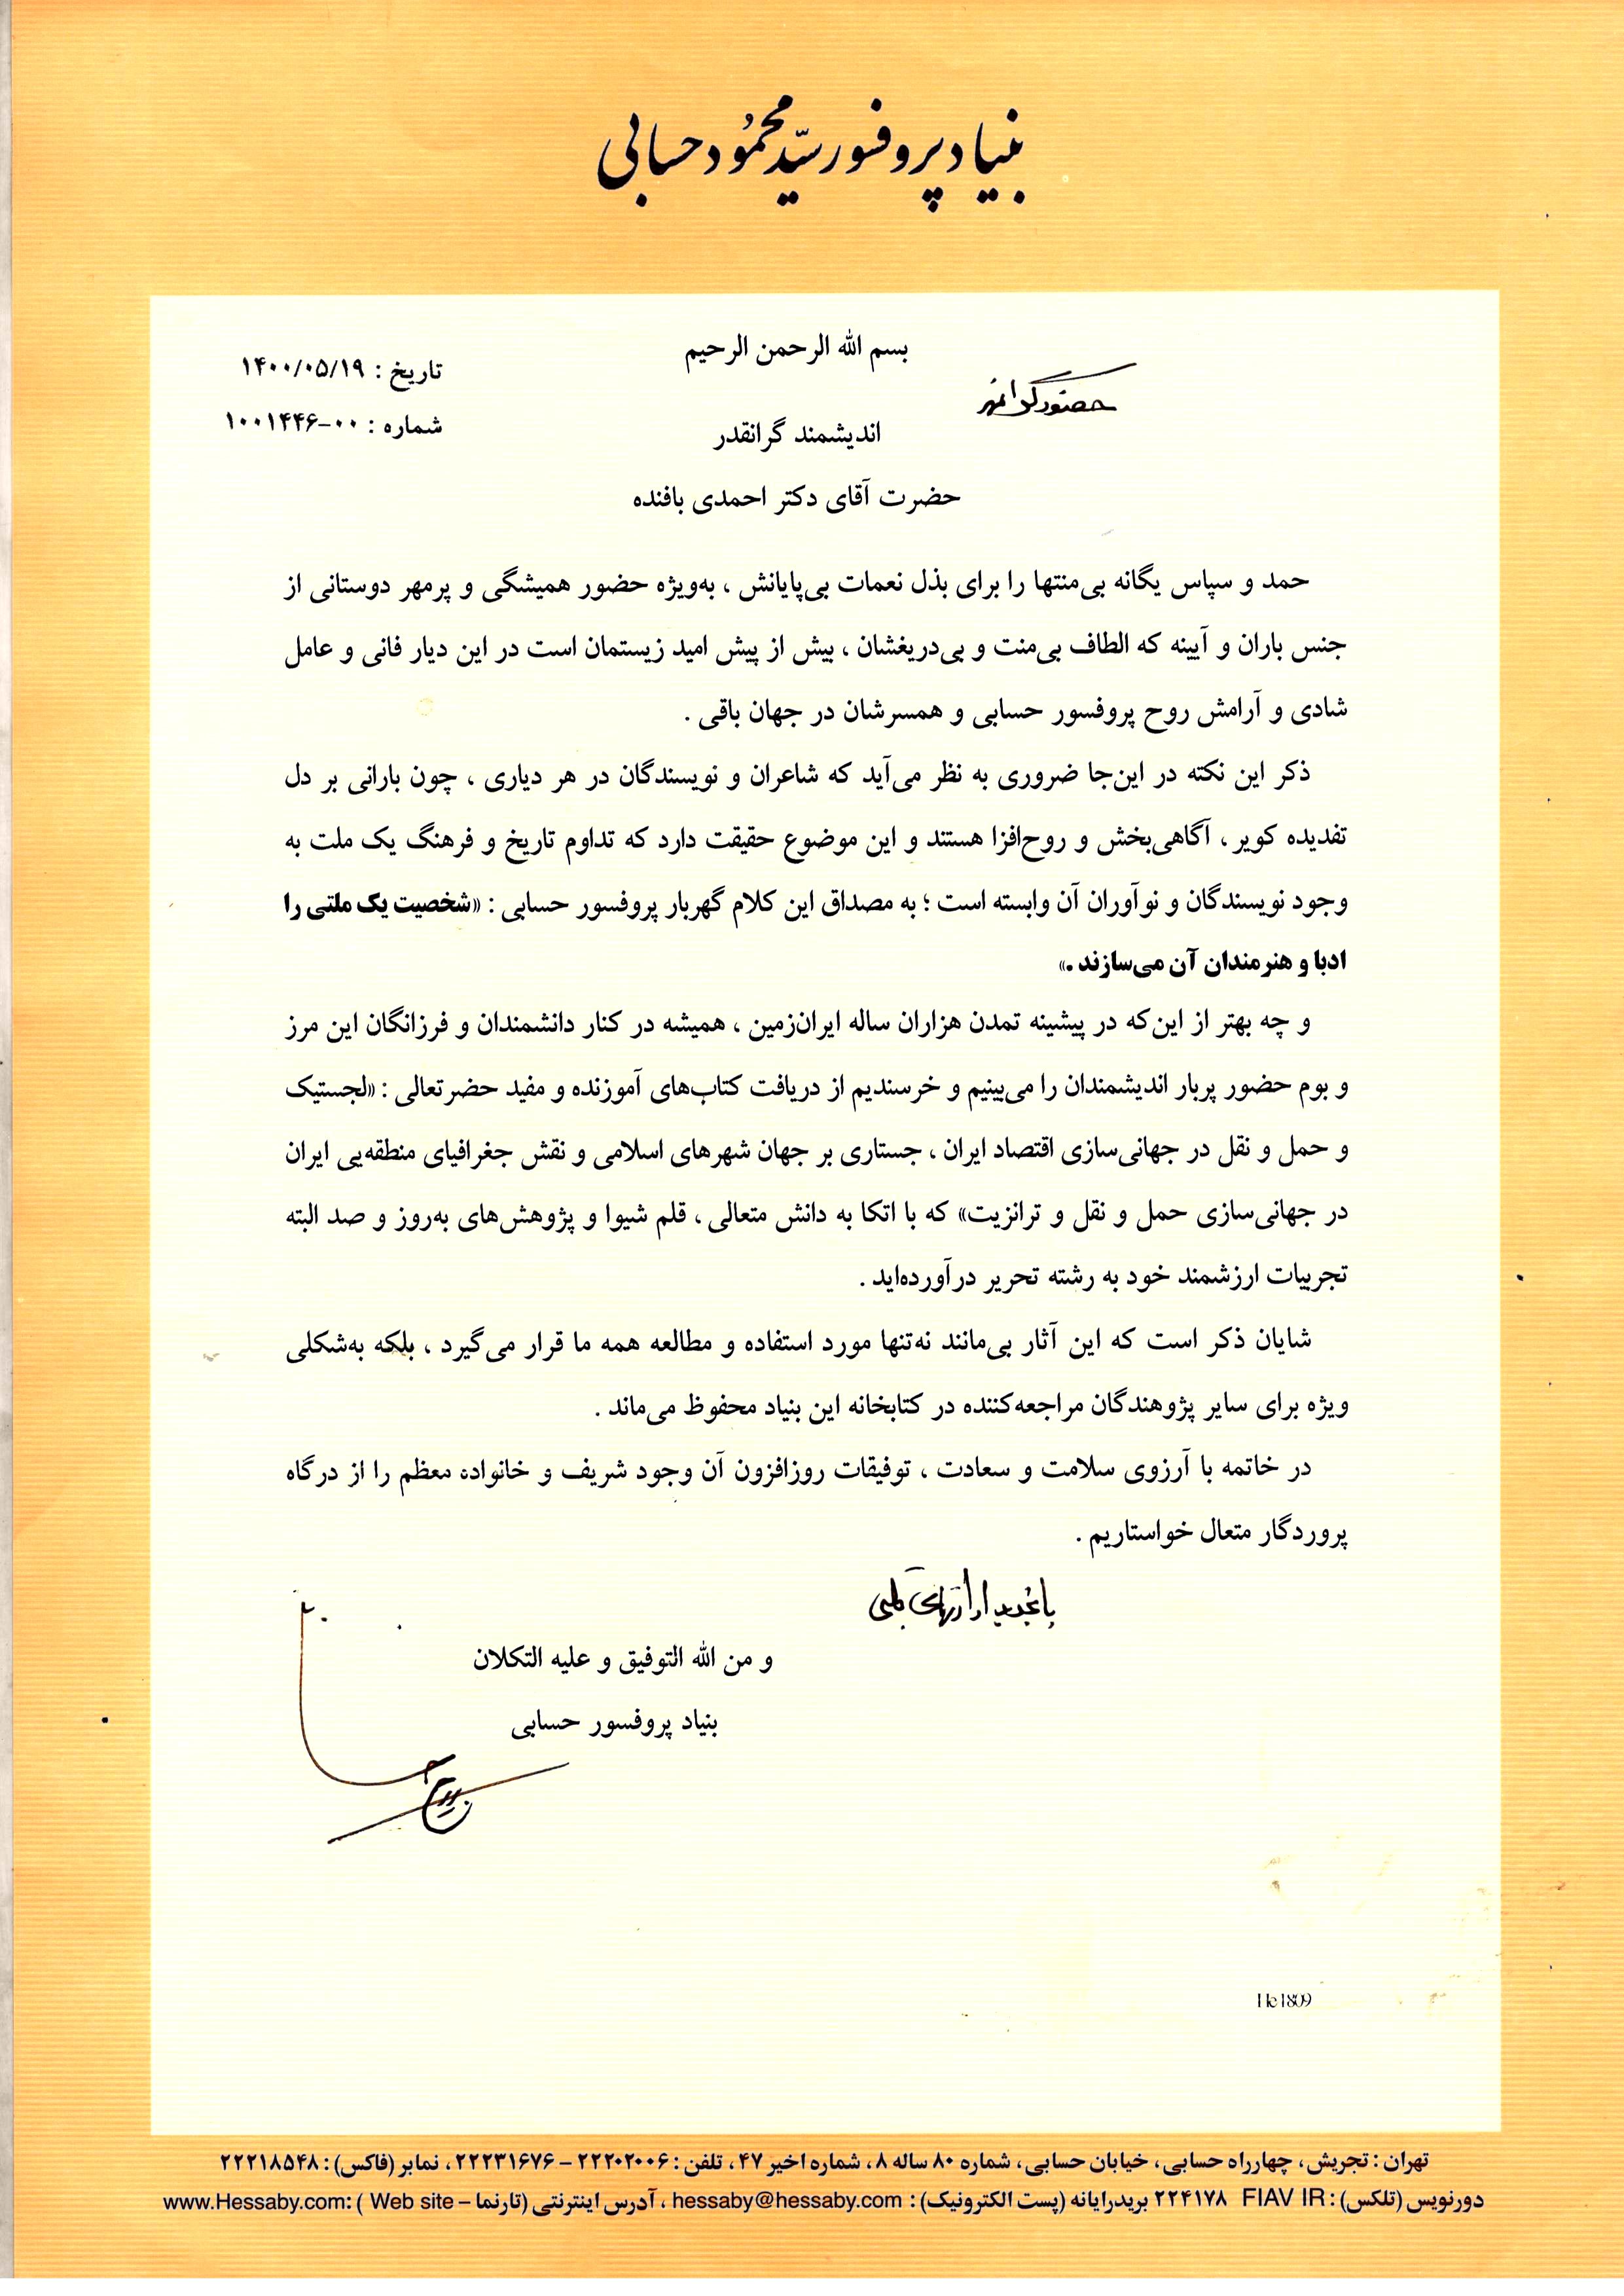 بنیاد پروفسور سیّد محمُود حسابی
بسم الله الرحمن الرحیم
تاریخ : ۱۴۰۰/۰۵/۱۹
شماره : ۰۰-۱۰۰۱۴۴۶
حضور گرانمهر
اندیشمند گرانقدر
حضرت آقای دکتر احمدی بافنده
حمد و سپاس یگانه بی‌منتها را برای بذل نعمات بی‌پایانش ، به‌ویژه حضور همیشگی و پرمهر دوستانی از
جنس باران و آیینه که الطاف بی‌منت و بی‌دریغشان ، بیش از پیش امید زیستمان است در این دیار فانی و عامل
شادی و آرامش روح پروفسور حسابی و همسرشان در جهان باقی .
ذکر این نکته در این‌جا ضروری به نظر می‌آید که شاعران و نویسندگان در هر دیاری ، چون بارانی بر دل
تفدیده کویر ، آگاهی‌بخش و روح‌افزا هستند و این موضوع حقیقت دارد که تداوم تاریخ و فرهنگ یک ملت به
وجود نویسندگان و نوآوران آن وابسته است ؛ به مصداق این کلام گهربار پروفسور حسابی : «شخصیت یک ملتی را
ادبا و هنرمندان آن می‌سازند .»
و چه بهتر از این‌که در پیشینه تمدن هزاران ساله ایران‌زمین ، همیشه در کنار دانشمندان و فرزانگان این مرز
و بوم حضور پربار اندیشمندان را می‌بینیم و خرسندیم از دریافت کتاب‌های آموزنده و مفید حضرتعالی : «لجستیک
و حمل و نقل در جهانی‌سازی اقتصاد ایران ، جستاری بر جهان شهرهای اسلامی و نقش جغرافیای منطقه‌یی ایران
در جهانی‌سازی حمل و نقل و ترانزیت» که با اتکا به دانش متعالی ، قلم شیوا و پژوهش‌های به‌روز و صد البته
تجربیات ارزشمند خود به رشته تحریر درآورده‌اید .
شایان ذکر است که این آثار بی‌مانند نه‌تنها مورد استفاده و مطالعه همه ما قرار می‌گیرد ، بلکه به‌شکلی
ویژه برای سایر پژوهندگان مراجعه‌کننده در کتابخانه این بنیاد محفوظ می‌ماند .
در خاتمه با آرزوی سلامت و سعادت ، توفیقات روزافزون آن وجود شریف و خانواده معظم را از درگاه
پروردگار متعال خواستاریم .
با تجدید ارادتهای قلبی
و من الله التوفیق و علیه التکلان
بنیاد پروفسور حسابی
He1809
تهران : تجریش، چهارراه حسابی، خیابان حسابی، شماره ۸۰ ساله ۸، شماره اخیر ۴۷، تلفن : ۲۲۲۰۲۰۰۶ – ۲۲۲۳۱۶۷۶، نمابر (فاکس) : ۲۲۲۱۸۵۴۸
دورنویس (تلکس) : FIAV IR ۲۲۴۱۷۸ بریدرایانه (پست الکترونیک) : hessaby@hessaby.com ، آدرس اینترنتی (تارنما – Web site ) :www.Hessaby.com